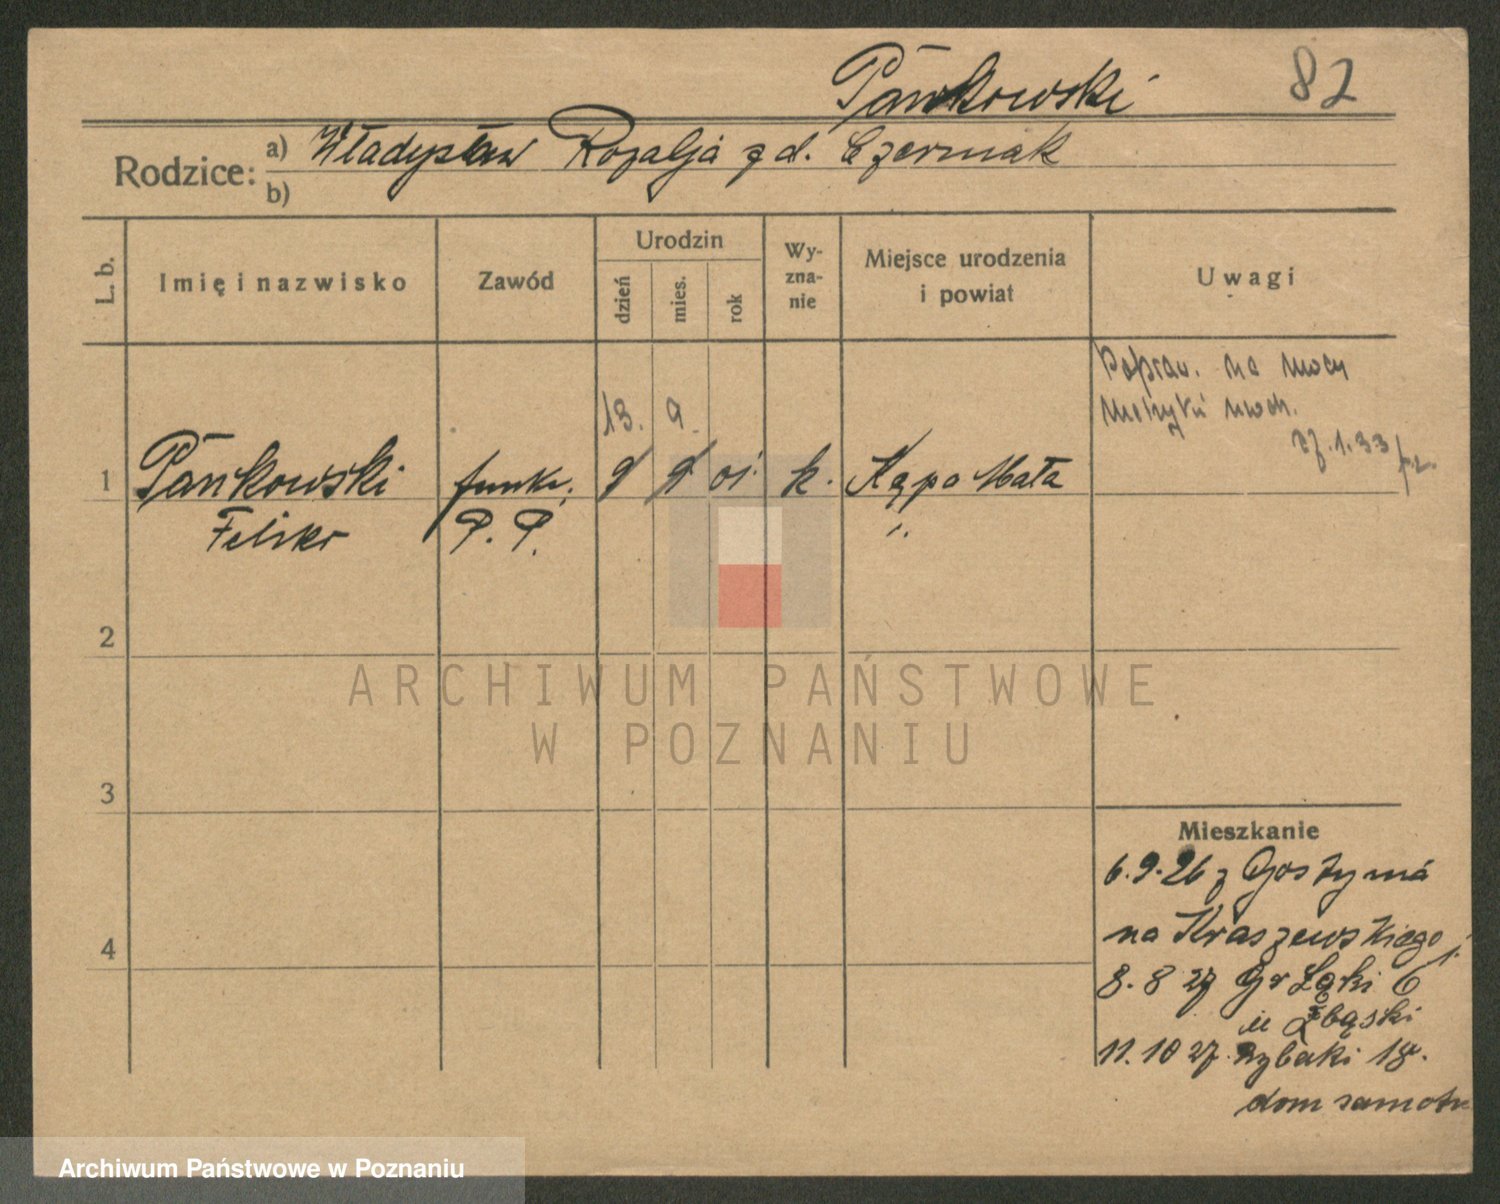 Pańkowski 82
Rodzice: a) Władysław Rozalja z d. Czermak
b)
L. b. Imię i nazwisko Zawód Urodzin dzień mies. rok Wyznanie Miejsce urodzenia i powiat Uwagi
Popraw. na mocy
metryki uwod.
1.33
13. 9.
1 Pańkowski funkc. 9 9 01. k. Kąpa Mała
Feliks P. P.
2
ARCHIWUM PAŃSTWOWE
W POZNANIU
3
Mieszkanie
6.9.26 z Gostynia
na Kraszewskiego
4
8.8 27 Gr Łąki 6
u Zbąski
11.10 27. Rybaki 18.
dom samotn
Archiwum Państwowe w Poznaniu